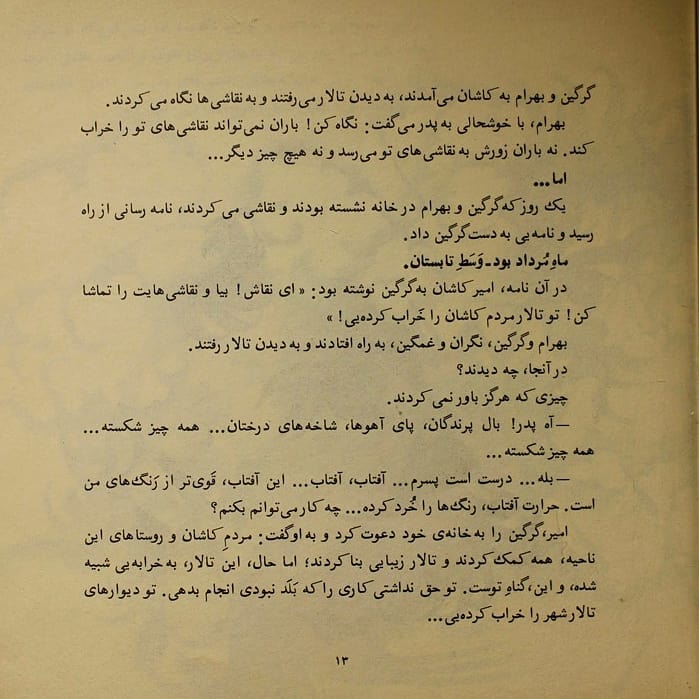 گرگین و بهرام به کاشان می‌آمدند، به دیدن تالار می‌رفتند و به نقاشی‌ها نگاه می‌کردند.
بهرام، با خوشحالی به پدر می‌گفت: نگاه کن! باران نمی‌تواند نقاشی‌های تو را خراب
کند. نه باران زورش به نقاشی‌های تو می‌رسد و نه هیچ چیز دیگر...
اما...
یک روز که گرگین و بهرام در خانه نشسته بودند و نقاشی می‌کردند، نامه رسانی از راه
رسید و نامه‌یی به دست گرگین داد.
ماهِ مُرداد بود ـ وَسَطِ تابستان.
در آن نامه، امیر کاشان به گرگین نوشته بود: « ای نقاش! بیا و نقاشی‌هایت را تماشا
کن! تو تالار مردم کاشان را خَراب کرده‌یی! »
بهرام و گرگین، نگران و غمگین، به راه افتادند و به دیدن تالار رفتند.
در آنجا، چه دیدند؟
چیزی که هرگز باور نمی‌کردند.
—آه پدر! بال پرندگان، پای آهوها، شاخه‌های درختان... همه چیز شکسته...
همه چیز شکسته...
—بله... درست است پسرم... آفتاب، آفتاب... این آفتاب، قَوی‌تر از رَنگ‌های من
است. حرارت آفتاب، رنگ‌ها را خُرد کرده... چه کار می‌توانم بکنم؟
امیر، گرگین را به خانه‌ی خود دعوت کرد و به او گفت: مردمِ کاشان و روستاهای این
ناحیه، همه کمک کردند و تالار زیبایی بنا کردند؛ اما حال، این تالار، به خرابه‌یی شبیه
شده، و این، گناهِ توست. تو حق نداشتی کاری را که بَلَد نبودی انجام بدهی. تو دیوارهای
تالار شهر را خراب کرده‌یی...
۱۳